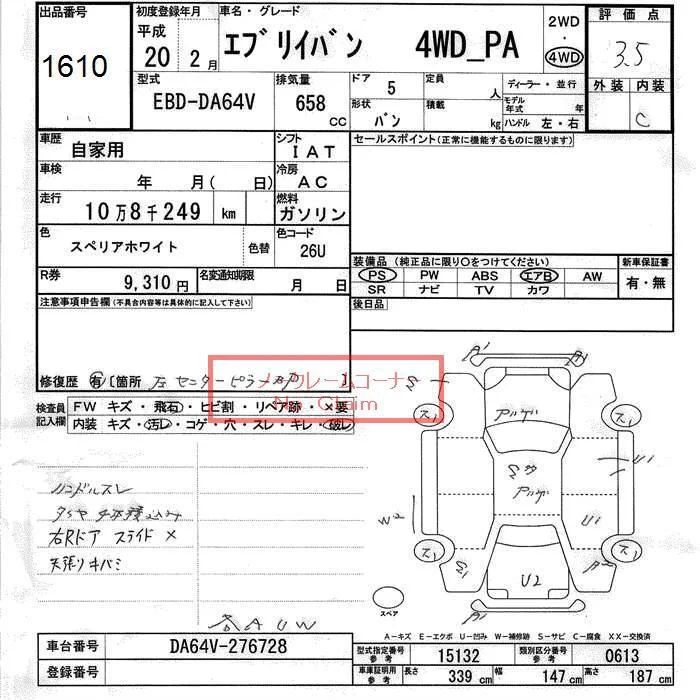 出品番号
1610
初度登録年月
平成
20 年 2 月
車名・グレード
エブリイバン 4WD_PA
2WD
・
4WD
評価点
3.5
外装 内装
C
型式
EBD-DA64V
排気量
658 CC
ドア 5
定員 人
形状 バン
積載 kg
ディーラー・並行
モデル年式 年
ハンドル 左・右
車歴
自家用
シフト
IAT
車検
年 月( 日)
冷房
AC
走行
10万8千249 km
燃料
ガソリン
色
スペリアホワイト
色替
色コード
26U
R券
9,310 円
名変通知期限
月 日
セールスポイント(正常に機能するものに限ります)
装備品(純正品に限り○をつけてください)
PS PW ABS エアB AW
SR ナビ TV カワ
新車保証書
有・無
注意事項申告欄(不具合内容等は具体的に記入して下さい)
後日品
修復歴 有〔箇所 左センターピラー 〕
ノークレームコーナー
No Claim
検査員記入欄
FW キズ・飛石・ヒビ割・リペア跡・×要
内装 キズ・汚レ・コゲ・穴・スレ・キレ・破レ
ハンドルスレ
右Rドア スライド ×
天張りキバミ
各AUW
A1
A1
S
アルゲ
ス1
ス1
アルゲ
U1
W2
U1
ス1
ス1
S1
A2
U2
A1
スペア
A-キズ E-エクボ U-凹み W-補修跡 S-サビ C-腐食 XX-交換済
車台番号
DA64V-276728
登録番号
型式指定番号 参考
15132
類別区分番号 参考
0613
車庫証明用 参考
長さ 339 cm 幅 147 cm 高さ 187 cm